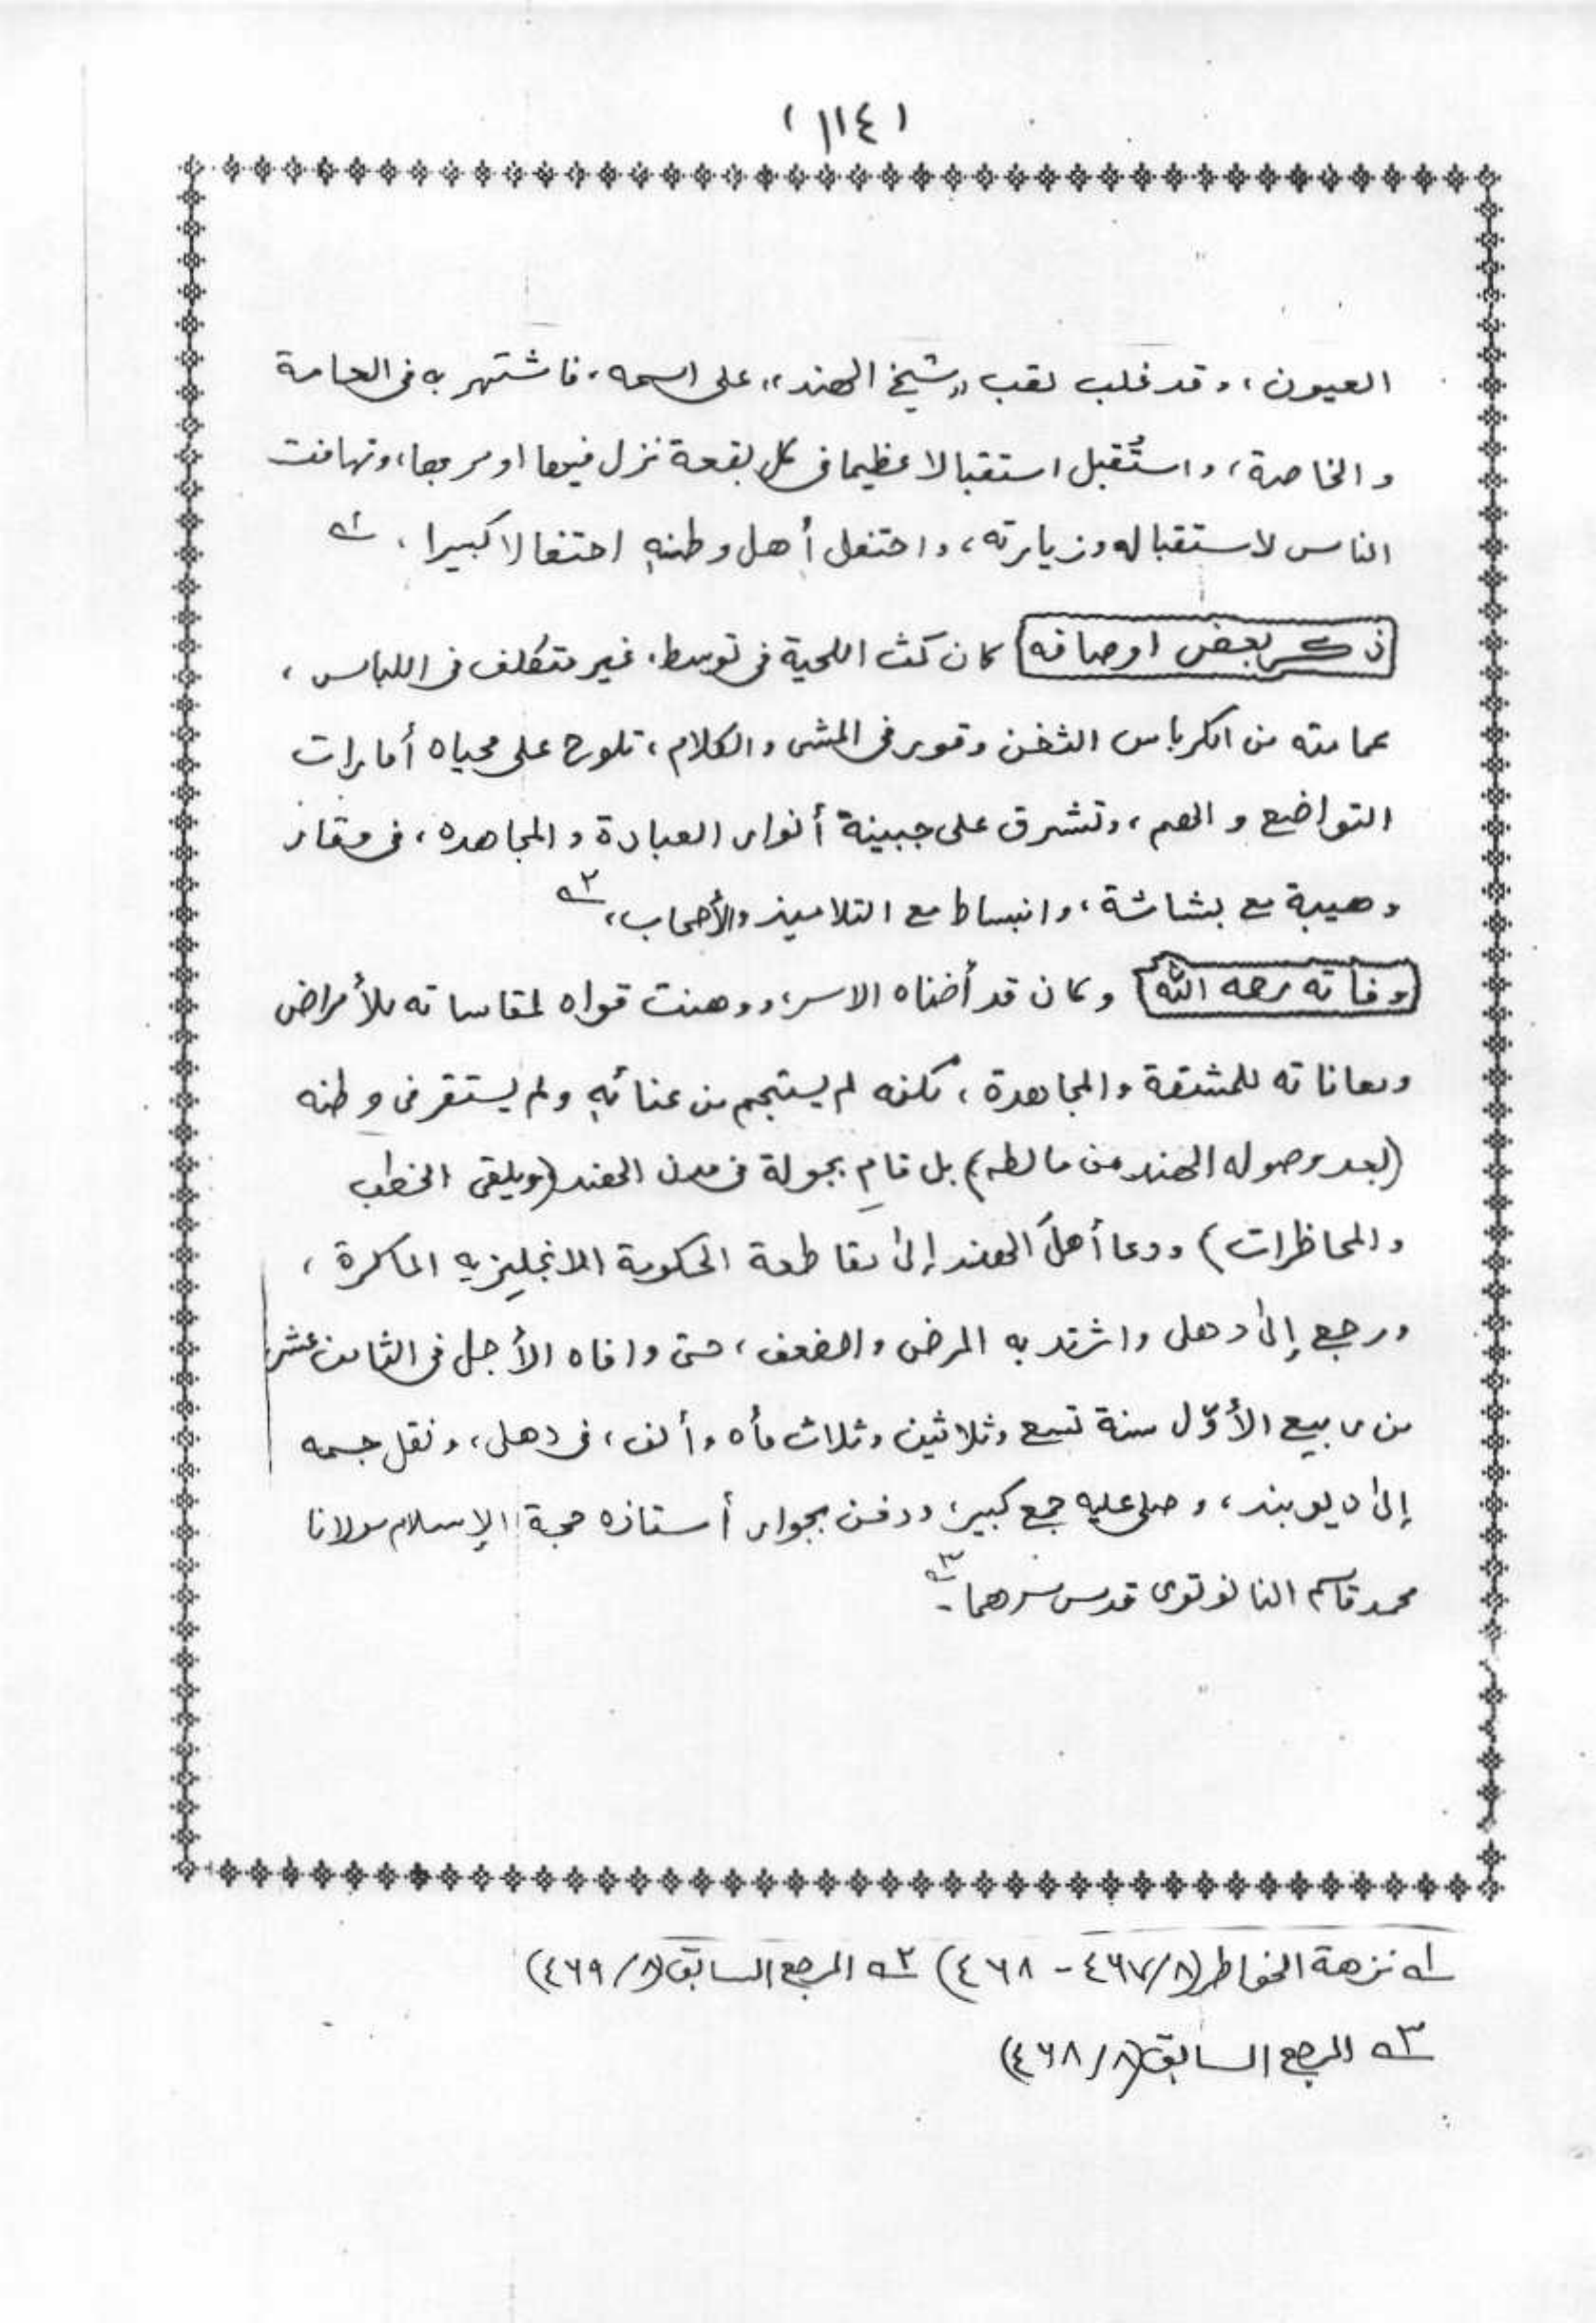 (١١٤)
العيون، وقد غلب لقب «شيخ الهند» على اسمه، فاشتهر به فى العامة
والخاصة، واستُقبل استقبالا عظيما فى كل بقعة نزل فيها او مر بها، وتهافت
الناس لاستقباله وزيارته، واحتفل أهل وطنهِ احتفالا كبيرا. ١ه
ذكر بعض اوصافه كان كث اللحية فى توسط، غير متكلف فى اللباس،
عمامته من الكرباس الثخن وقور فى المشى والكلام، تلوح على محياه أمارات
التواضع والهم، وتشرق على جبينة أنوار العبادة والمجاهده، فى وقار
وهيبة مع بشاشة، وانبساط مع التلاميذ والأصحاب، ٢ه
وفاته رحمه الله وكان قد أضناه الاسر، ووهنت قواه لمقاساته للأمراض
ومعاناته للمشقة والمجاهدة، لكنه لم يستجم من عنائهِ ولم يستقر فى وطنه
(بعد وصوله الهند من مالطه) بل قام بجولة فى مدن الهند (ويلقى الخطب
والمحاظرات) ودعا أهلَ الهند إلىٰ مقاطعة الحكومة الانجليزيه الماكرة،
ورجع إلىٰ دهلى واشتد به المرض والضعف، حتى وافاه الأجل فى الثامن عشر
من ربيع الأوّل سنة تسع وثلاثين وثلاث مأه وألف، فى دهلى، ونقل جسمه
إلىٰ ديوبند، وصلى عليه جمع كبير، ودفن بجوار أستاذه حجة الإسلام مولانا
محمد قاسم النانوتوى قدس سرهما - ٣ه
١ه نزهة الخواطر (٨/٤٦٧ - ٤٦٨) ٢ه المرجع السابق (٨/٤٦٩)
٣ه المرجع السابق (٨/٤٦٨)